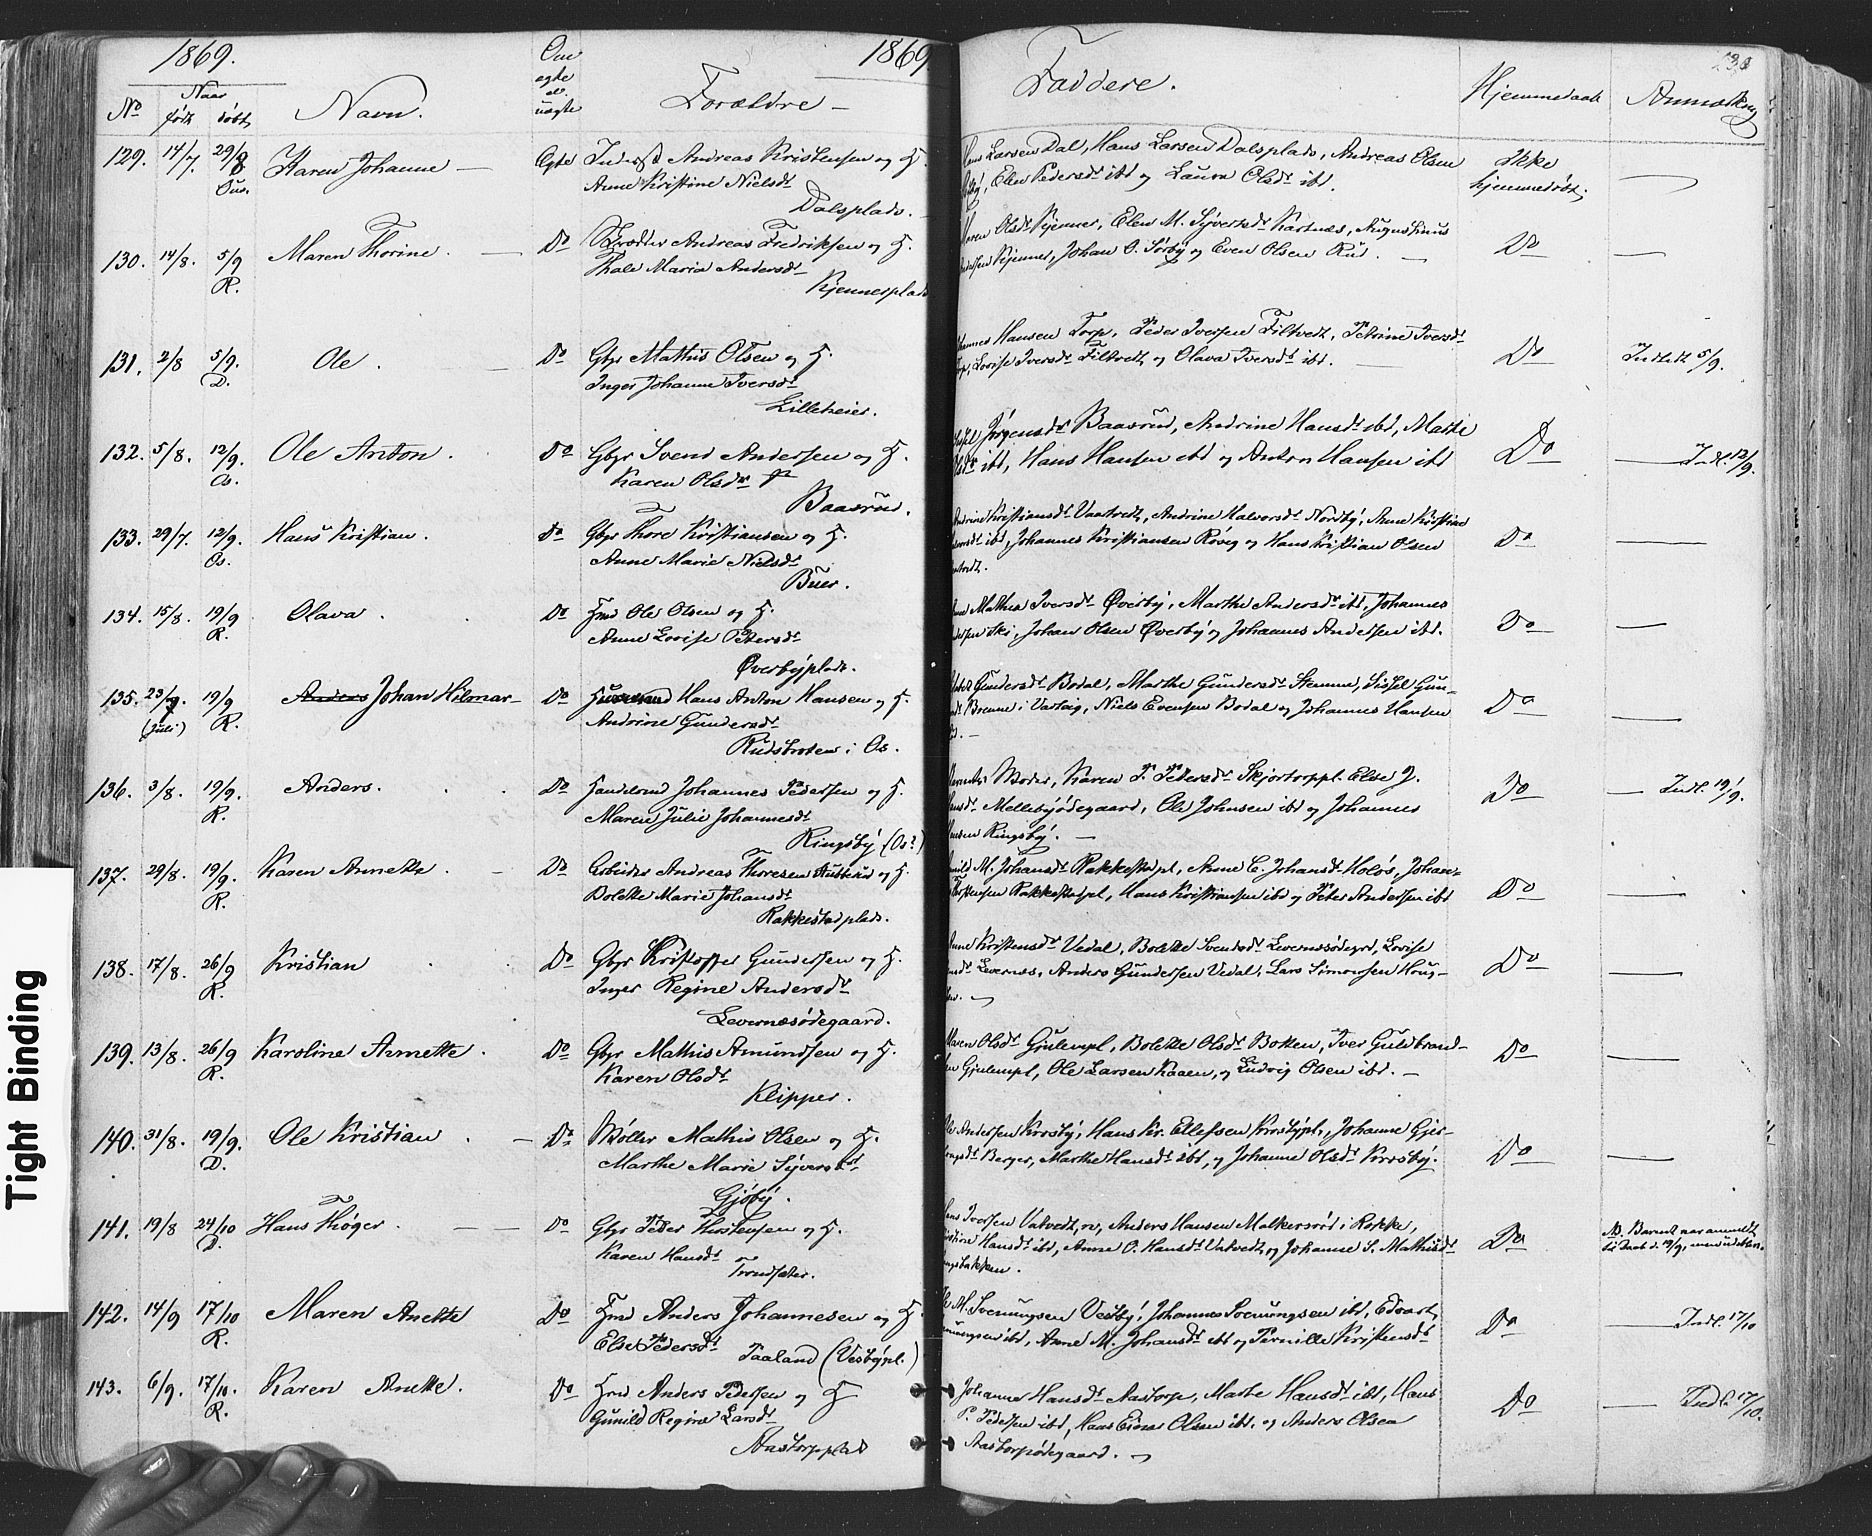 1869.
No
Naar
født
døbt
Navn.
Om
ægte
el.
uægte
Forældre
1869
Faddere.
Hjemmedaab
129. 14/7. 29/8 Karen Johanne Ægte Inderst Andreas Kristensen og H.
Ous. Anne Kristine Nielsdt
Dalsplads.
Larsen Dal, Hans Larsen Dalsplads, Andreas Olsen Ikke
Elen Pedersdt ibd og Laura Olsdt ibd. hjemmedøbt.
130. 14/8. 5/9 Maren Thorine. Do Skrædder Andreas Fredriksen og H.
R. Thale Maria Andersdt
Kjennerplads
Olsdt Kjenner, Elen M. Syversdt Kartnæs, Augustinus
Kjenner, Johan O. Sørby og Even Olsen Rud. Do
131. 2/8 5/9. Ole. Do Gbr Mathis Olsen og H.
D. Inger Johanne Iversdt
Lilleheier.
Hansen Torp, Peder Iversen Filtvedt, Petrine Iversdt
Lovise Iversdt Filtvedt og Olava Iversdt ibd. Do Indledt 5/9.
132. 5/8. 12/9. Ole Anton. Do Gbr Svend Andersen og H.
Os. Karen Olsdt
Baasrud.
Jørgensdt Baasrud, Andrine Hansdt ibd, Marthe
ibd, Hans Hansen ibd og Anton Hansen ibd Do Indl. 12/9.
133. 29/7. 12/9. Hans Kristian. Do Gbr Thore Kristiansen og H.
Os. Anne Marie Nielsdt
Buer.
Kristiansdt Vaatvedt, Andrine Halvorsdt Nordby, Anne Kristine
ibd, Johannes Kristiansen Røveg og Hans Kristian Olsen Do
134. 15/8. 19/9 Olava. Do Hmd Ole Olsen og H.
R. Anne Lovise Petersdt
Øverbyplads.
Mathea Iversdt Øverby, Marthe Andersdt ibd, Johannes
Ski, Johan Olsen Øverby og Johannes Andersen ibd. Do
135. 23/7. 19/9 Anders Johan Hilmar Do Husmand Hans Anton Hansen og H.
(Juli) R. Andrine Gundersdt
Rudsbroten i Os.
Gundersdt Bodal, Marthe Gundersdt Stemme, Sissel Gun-
Brenne i Varteig, Niels Evensen Bodal og Johannes Hansen Do
136. 3/8. 19/9. Anders. Do Handelsmd Johannes Pedersen og H.
R. Maren Julie Johannesdt
Ringsby (Os?)
Moder, Karen P. Pedersdt Skjortorppl. Else J.
Mellebyødegaard, Ole Johnsen ibd og Johannes Do Indl. 19/9.
Ringsby.
137. 29/8. 19/9. Karen Annette. Do Arbeider Andreas Thoresen og H.
R. Bolette Marie Johansdt
Rakkestadplads.
M. Johansdt Rakkestadpl, Anne C. Johansdt Holøs, Johan-
Rakkestadpl, Hans Kristiansen ibd og Peter Andersen ibd Do
138. 17/8. 26/9 Kristian Do Gbr Kristoffer Gundersen og H.
R. Inger Regine Andersdt
Levernæsødegaard.
Kristensdt Vedal, Bolette Svendsdt Levernæsødegrd, Lovise
Levernæs, Anders Gundersen Vedal, Lars Simonsen Haug- Do
139. 13/8. 26/9 Karoline Annette. Do Gbr Mathis Amundsen og H.
R. Karen Olsdt
Klipper.
Maren Olsdt Gjulempl, Bolette Olsdt Botten, Iver Guldbrand-
Gjulempl, Ole Larsen Kaaen, og Ludvig Olsen ibd. Do
140. 31/8. 19/9. Ole Kristian Do Møller Mathis Olsen og H.
D. Marthe Marie Syversdt
Gjøby.
Andersen Krosby, Hans Kr. Ellefsen Krosbypl, Johanne Gjer-
Berger, Marthe Hansdt ibd, og Johanne Olsdt Krosby. Do
141. 19/8 24/10 Hans Thøger. Do Gbr Peder Thorstensen og H.
D. Karen Hansdt
Trondsæter.
Iversen Vatvedt, Anders Hansen Malkersrød i Rokke,
Hansdt ibd, Anne O. Hansdt Vatvedt, og Johanne S. Mathisdt Do NB. Barnet var anmeldt
til Daab d. 19/9, men udeblev.
142. 14/9 17/10 Maren Anette Do Hmd Anders Johannesen og H.
R. Else Pedersdt Taaland (Vesbypl.)
M. Svenungsen Vesby, Johannes Svenungsen ibd, Edvart
ibd, Anne M. Johansdt ibd og Pernille Kristensdt Do Indl. 17/10
143. 6/9. 17/10. Karen Anette. Do Hmd Anders Pedersen og H
R. Gunild Regine Larsdt
Aastorpplads
Johanne Hansdt Aastorp, Marthe Hansdt ibd, Hans
P. Pedersen ibd, Hans Einar Olsen ibd. og Anders Olsen Do Indl. 17/10.
Aastorpødegaard.
Tight Binding